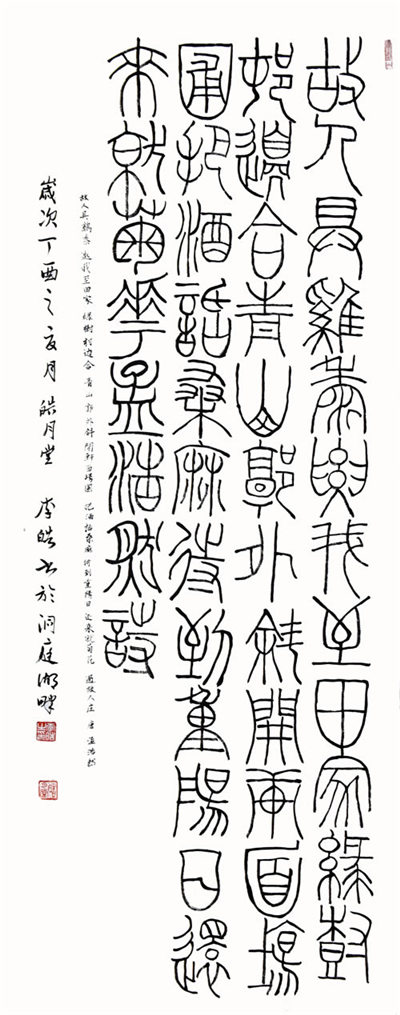 故人具雞黍要我至田家綠樹
邨邊合青山郭外斜開軒面場
圃把酒話桑麻待到重陽日還
來就菊花孟浩然詩
故人具鷄黍 邀我至田家 綠樹村边合 青山郭外斜 開軒面場圃 把酒話桑麻 待到重陽日 还來就菊花 過故人庄 唐 孟浩然
歲次丁酉之夏月 皓月堂 李皓书於洞庭湖畔